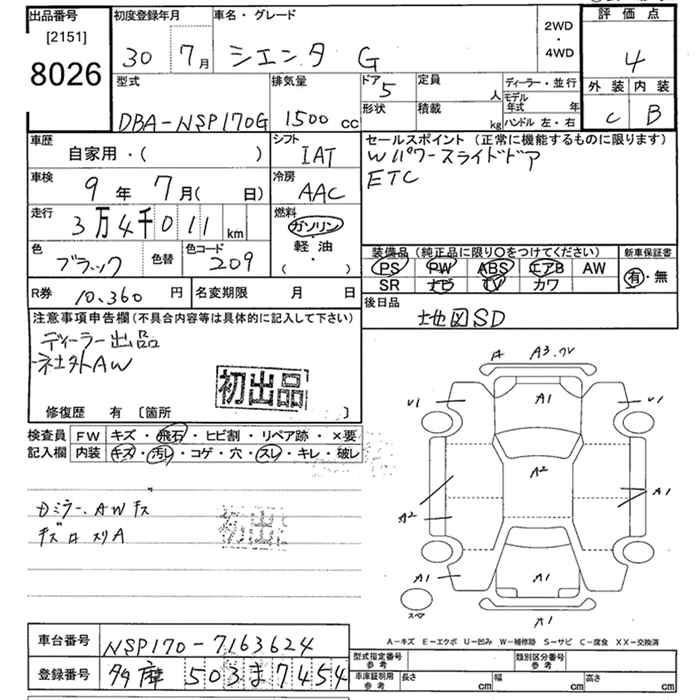 出品番号
[2151]
8026
初度登録年月
30 7月
車名・グレード
シエンタ G
2WD
・
4WD
評価点
4
外装 内装
C B
型式
DBA-NSP170G
排気量
1500 cc
ドア
5
形状
定員
人
積載
kg
ディーラー・並行
モデル
年式 年
ハンドル 左・右
車歴
自家用・( )
シフト
IAT
車検
9年 7月( 日)
冷房
AAC
走行
3万4千011 km
燃料
ガソリン
・
軽・油
( )
色
ブラック
色替
色コード
209
セールスポイント (正常に機能するものに限ります)
Wパワースライドドア
ETC
装備品 (純正品に限り○をつけてください)
PS PW ABS エアB AW
SR ナビ TV カワ
新車保証書
有・無
R券 10,360 円
名変期限 月 日
後日品
地図SD
注意事項申告欄 (不具合内容等は具体的に記入して下さい)
ディーラー出品
社外AW
初出品
修復歴 有 [箇所 ]
検査員 FW キズ・飛石・ヒビ割・リペア跡・×要
記入欄 内装 キズ・汚レ・コゲ・穴・スレ・キレ・破レ
Dミラー、AWキズ
初出品
A A3.7V
U1 A1 U1
A2
A2 A1
A1 A1
スペア A1
A-キズ E-エクボ U-凹み W-補修跡 S-サビ C-腐食 XX-交換済
車台番号 NSP170-7163624
登録番号 多摩 503ま7454
型式指定番号
参考
類別区分番号
参考
車庫証明用
参考
長さ cm 幅 cm 高さ cm